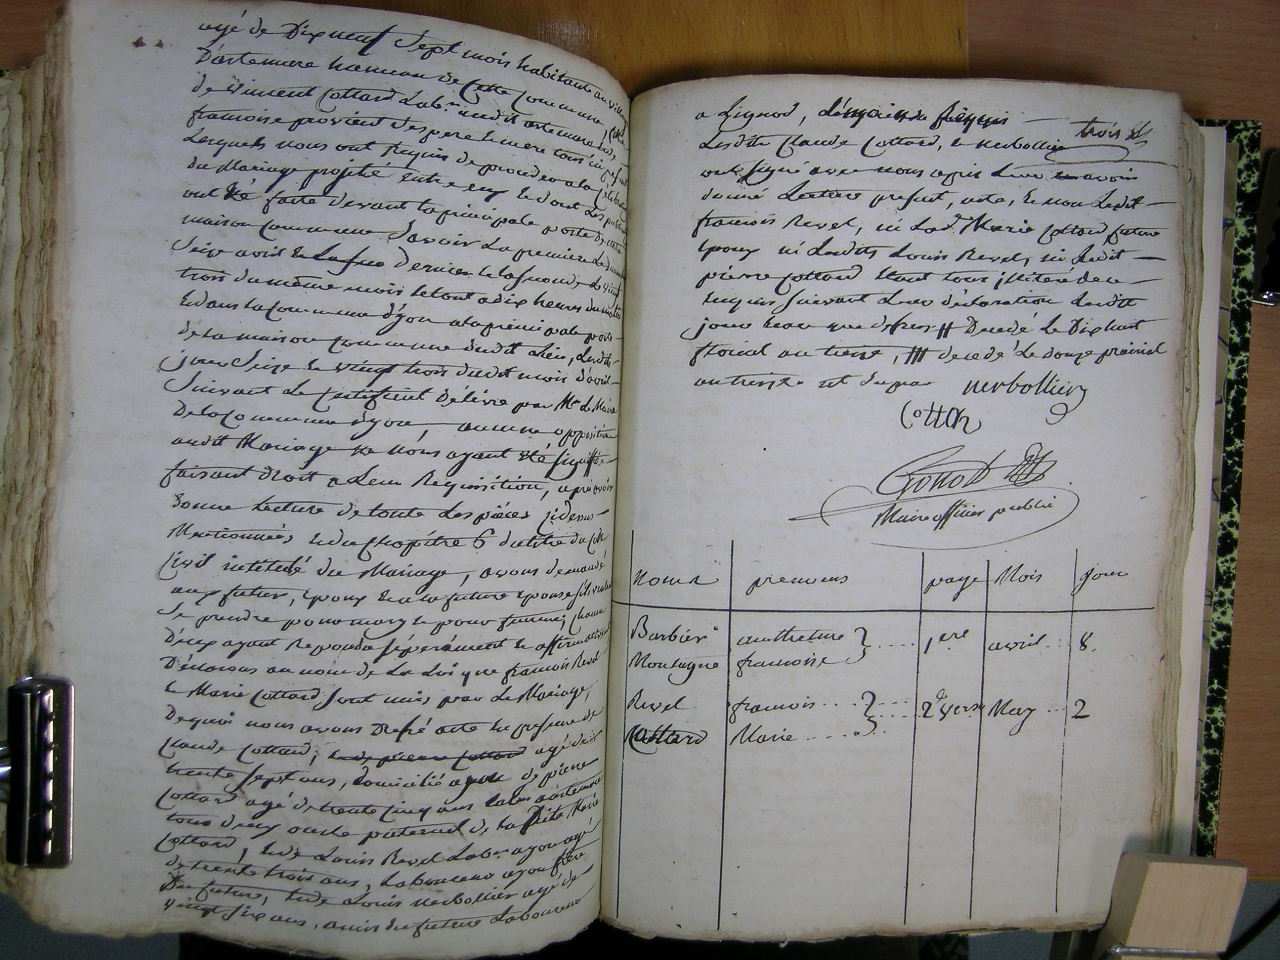 agé de Dix neuf Sept mois habitante au
D'artemare hameau de Cette Commune,
de Vincent Cottard Lab.r audit artemare
françoise provient des pere et mere tous
Lesquels nous ont Requis de proceder a la
du Mariage projetté entre eux et dont Les
ont été faite devant la principale porte de
maison Commune Savoir La premiere Le
Seize avril dernier et la Seconde Le vingt
trois du même mois le tout a dix heures du
Et dans la Commune d'yon a la principale porte
de la maison Commune dudit Lieu, Lesdits
jours Seize et vingt trois dudit mois d'avril
Suivant Le Certificat Délivré par Mr Le Maire
De la Commune d'yon, aucune opposition
audit Mariage ne nous ayant été Signiffié
faisant droit a Leur Requisition, apres avoir
Donné Lecture de toute Les pièces Cidessus
Mentionnées et du Chapitre 6 du titre du Code
Civil intitulé du Mariage, avons demandé
au futur, Epoux et a la future Epouse s'ils veulent
Se prendre pour mary et pour femme, Chacun
D'eux ayant Repondu séparément et affirmativement
Declarons au nom de La Loi que francois Revel
et Marie Cottard Sont unis par Le Mariage,
De quoi nous avons Dressé acte En presence de
Claude Cottard, agé de
trente Sept ans, domicilié a de pierre
Cottard agé de trente Cinq ans Lab.r a artemare
tous deux oncle paternel de la Ditte Marie
Cottard, et de Louis Revel Lab.r a yon agé
de trente trois ans, Laboureur a yon frère
Du future, et de Louis nerbollier agé de
vingt Six ans, amis du future Laboureur
a Lignod, témoins Requis
Lesdits Claude Cottard, et nerbollier trois
ont Signé avec nous apres Leur en avoir
donné Lecture presents, acte, Et non Ledit
francois Revel, ni La d. Marie Cottard future
Epoux ni Ledits Louis Revel, ni Ledit
pierre Cottard Etant tous illitéré de ce
Enquis Suivant Leur déclaration Lesdits
jour heure que dessus # Decedé Le Dix huit
floreal an treize, ## decedé Le douze prairial
an treize nerbollier
Cottard
Gonod
Maire officier public
Noms prenoms page Mois jour
Barbier anthelme 1.ere avril 8
Montagne francoise
Revel francois 2e verso May 2
Cottard Marie